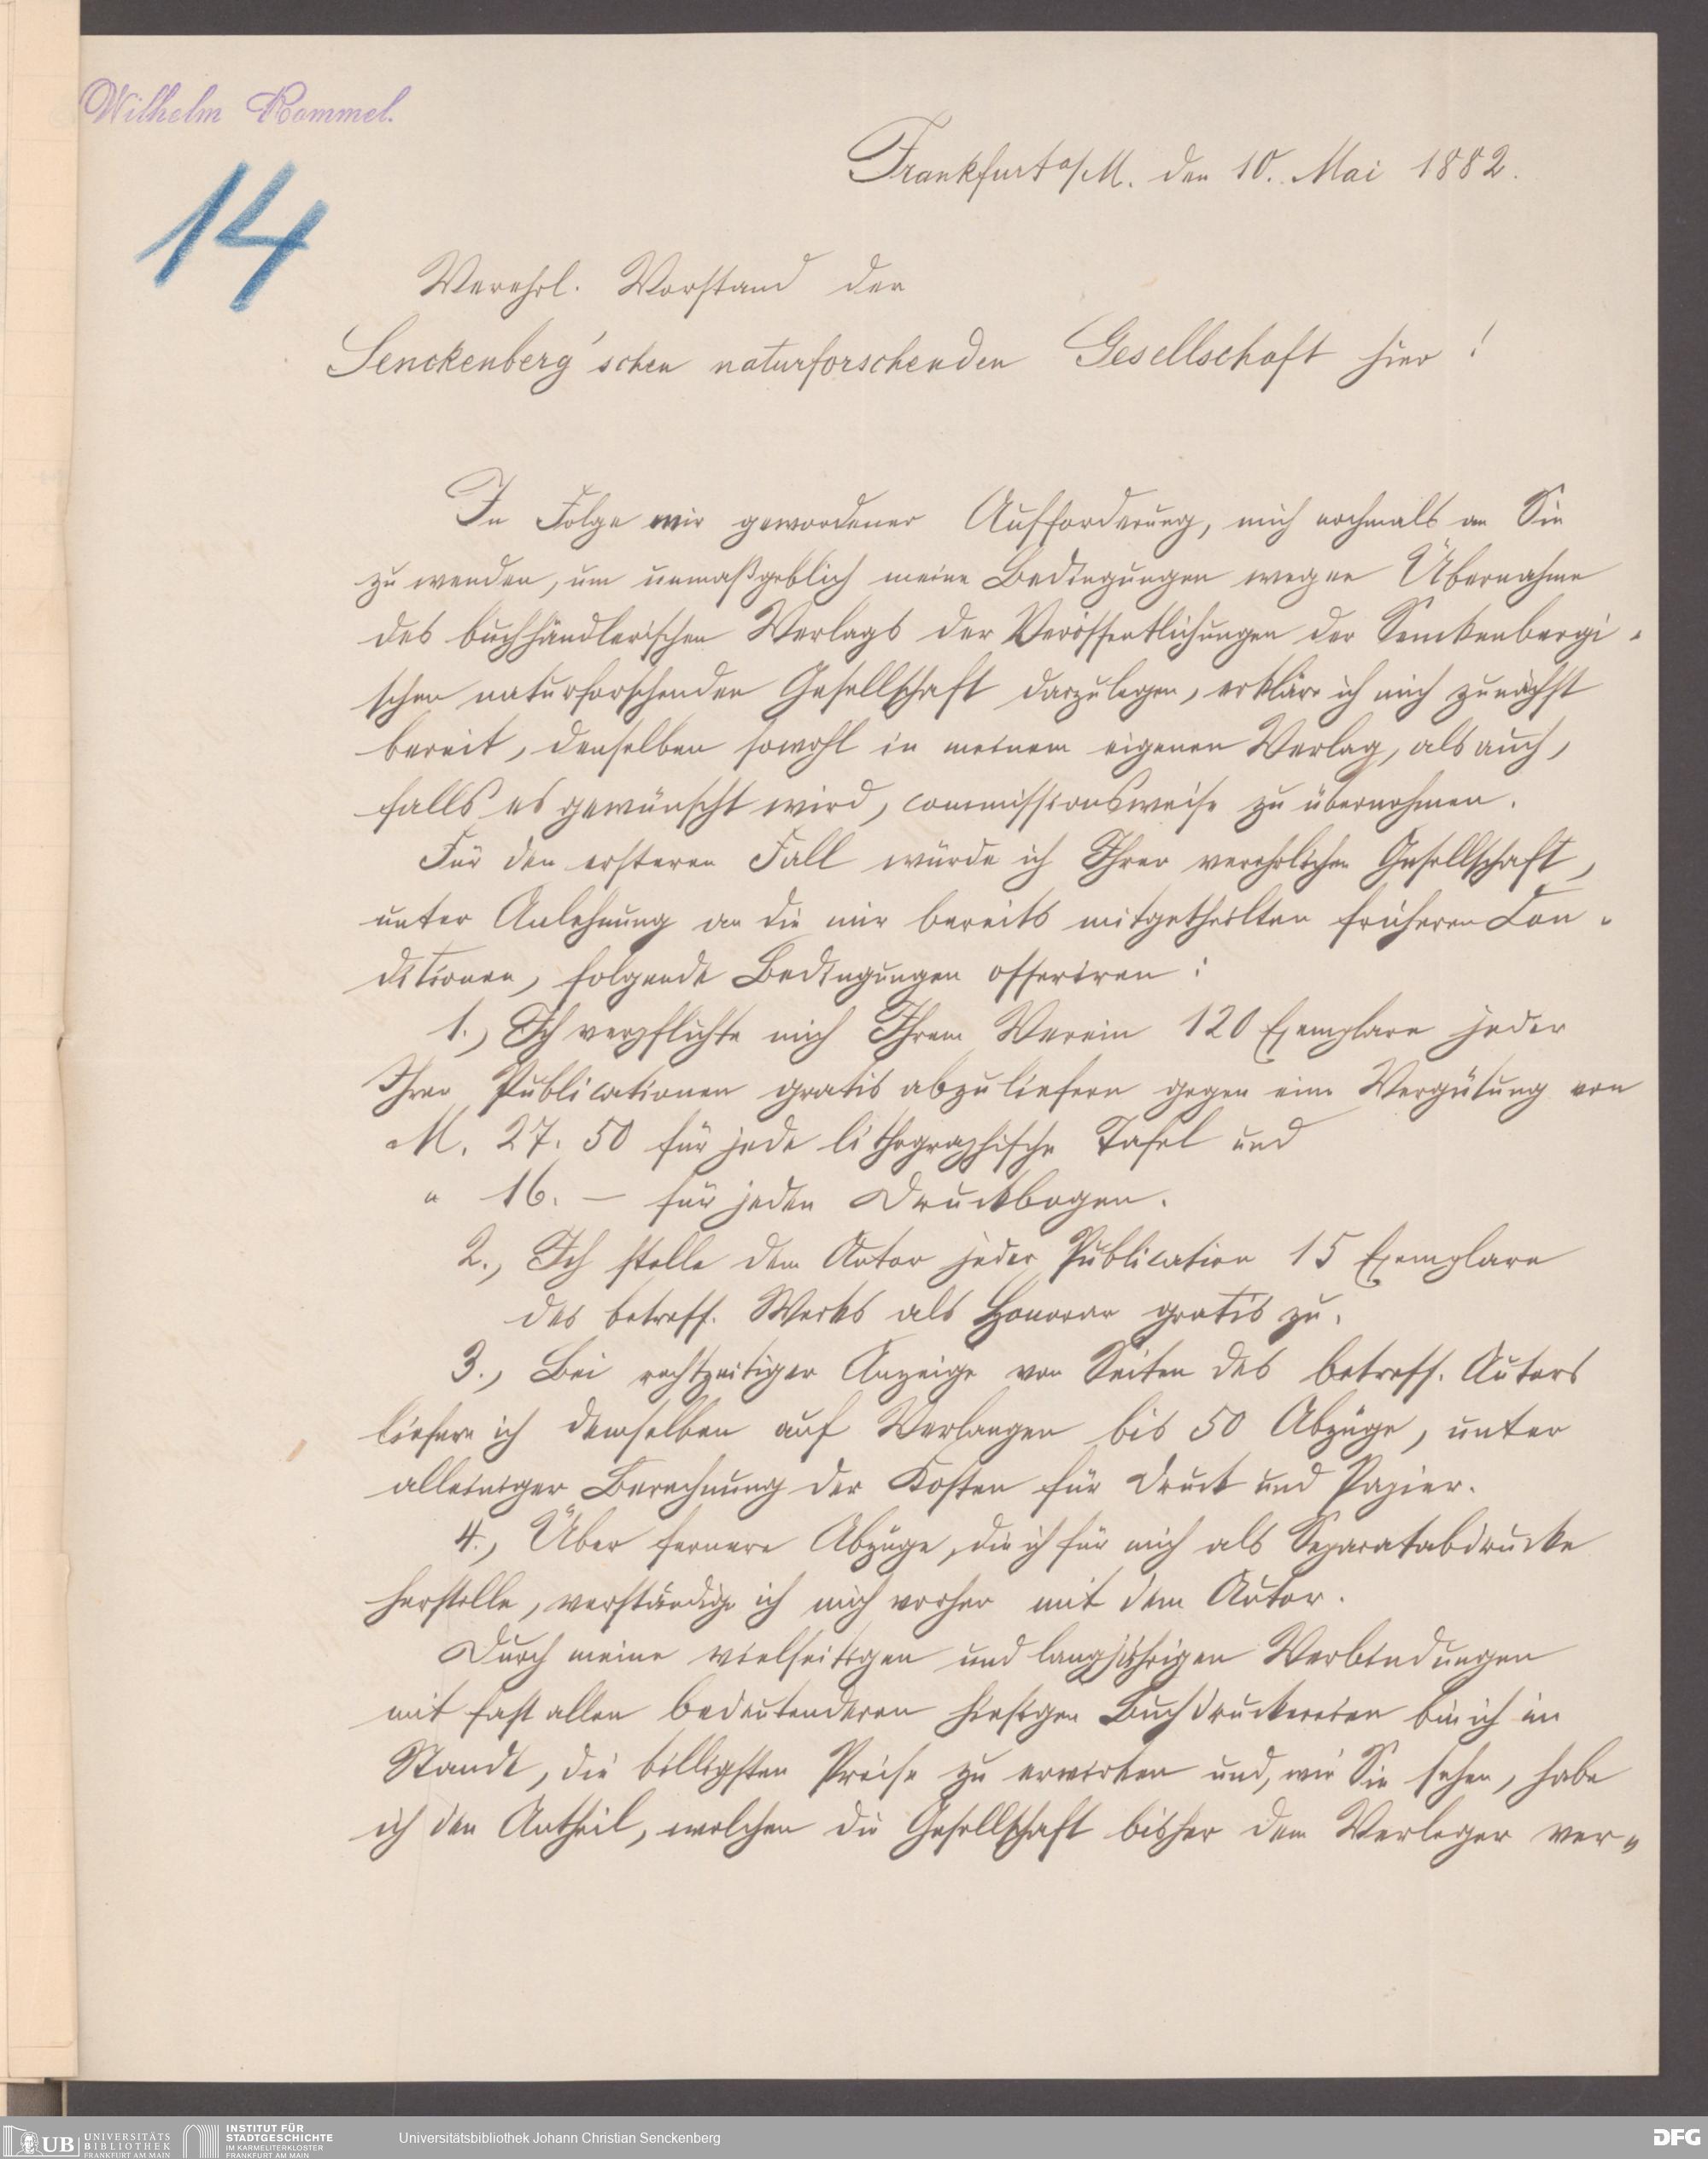 Wilhelm Rommel.
14
Frankfurt a/M. den 10. Mai 1882.
Verehrl. Vorstand der
Senckenberg'schen naturforschenden Gesellschaft hier!
In Folge mir gewordener Aufforderung, mich nochmals an Sie
zu wenden, um unmaßgeblich meine Bedingungen wegen Übernahme
des buchhändlerischen Verlags der Veröffentlichungen der Senckenbergi-
schen naturforschenden Gesellschaft darzulegen, erkläre ich mich zunächst
bereit, denselben sowohl in meinem eigenen Verlag, als auch,
falls es gewünscht wird, commissionsweise zu übernehmen.
Für den ersteren Fall würde ich Ihrer verehrlichen Gesellschaft,
unter Anlehnung an die mir bereits mitgetheilten früheren Con-
ditionen, folgende Bedingungen offeriren:
1., Ich verpflichte mich Ihrem Verein 120 Exemplare jeder
Ihrer Publicationen gratis abzuliefern gegen eine Vergütung von
M. 27. 50 für jede lithographische Tafel und
" 16. — für jeden Druckbogen.
2., Ich stelle dem Autor jeder Publication 15 Exemplare
des betreff. Werks als Honorar gratis zu.
3., Bei rechtzeitiger Anzeige von Seiten des betreff. Autors
liefere ich demselben auf Verlangen bis 50 Abzüge, unter
alleiniger Berechnung der Kosten für Druck und Papier.
4., Über fernere Abzüge, die ich für mich als Separatabdrucke
herstelle, verständige ich mich vorher mit dem Autor.
Durch meine vielseitigen und langjährigen Verbindungen
mit fast allen bedeutenderen hiesigen Buchdruckereien bin ich im
Stande, die billigsten Preise zu erwirken und, wie Sie sehen, habe
ich den Antheil, welchen die Gesellschaft bisher dem Verleger ver-
UB UNIVERSITÄTS
BIBLIOTHEK
FRANKFURT AM MAIN
INSTITUT FÜR
STADTGESCHICHTE
IM KARMELITERKLOSTER
FRANKFURT AM MAIN
Universitätsbibliothek Johann Christian Senckenberg
DFG